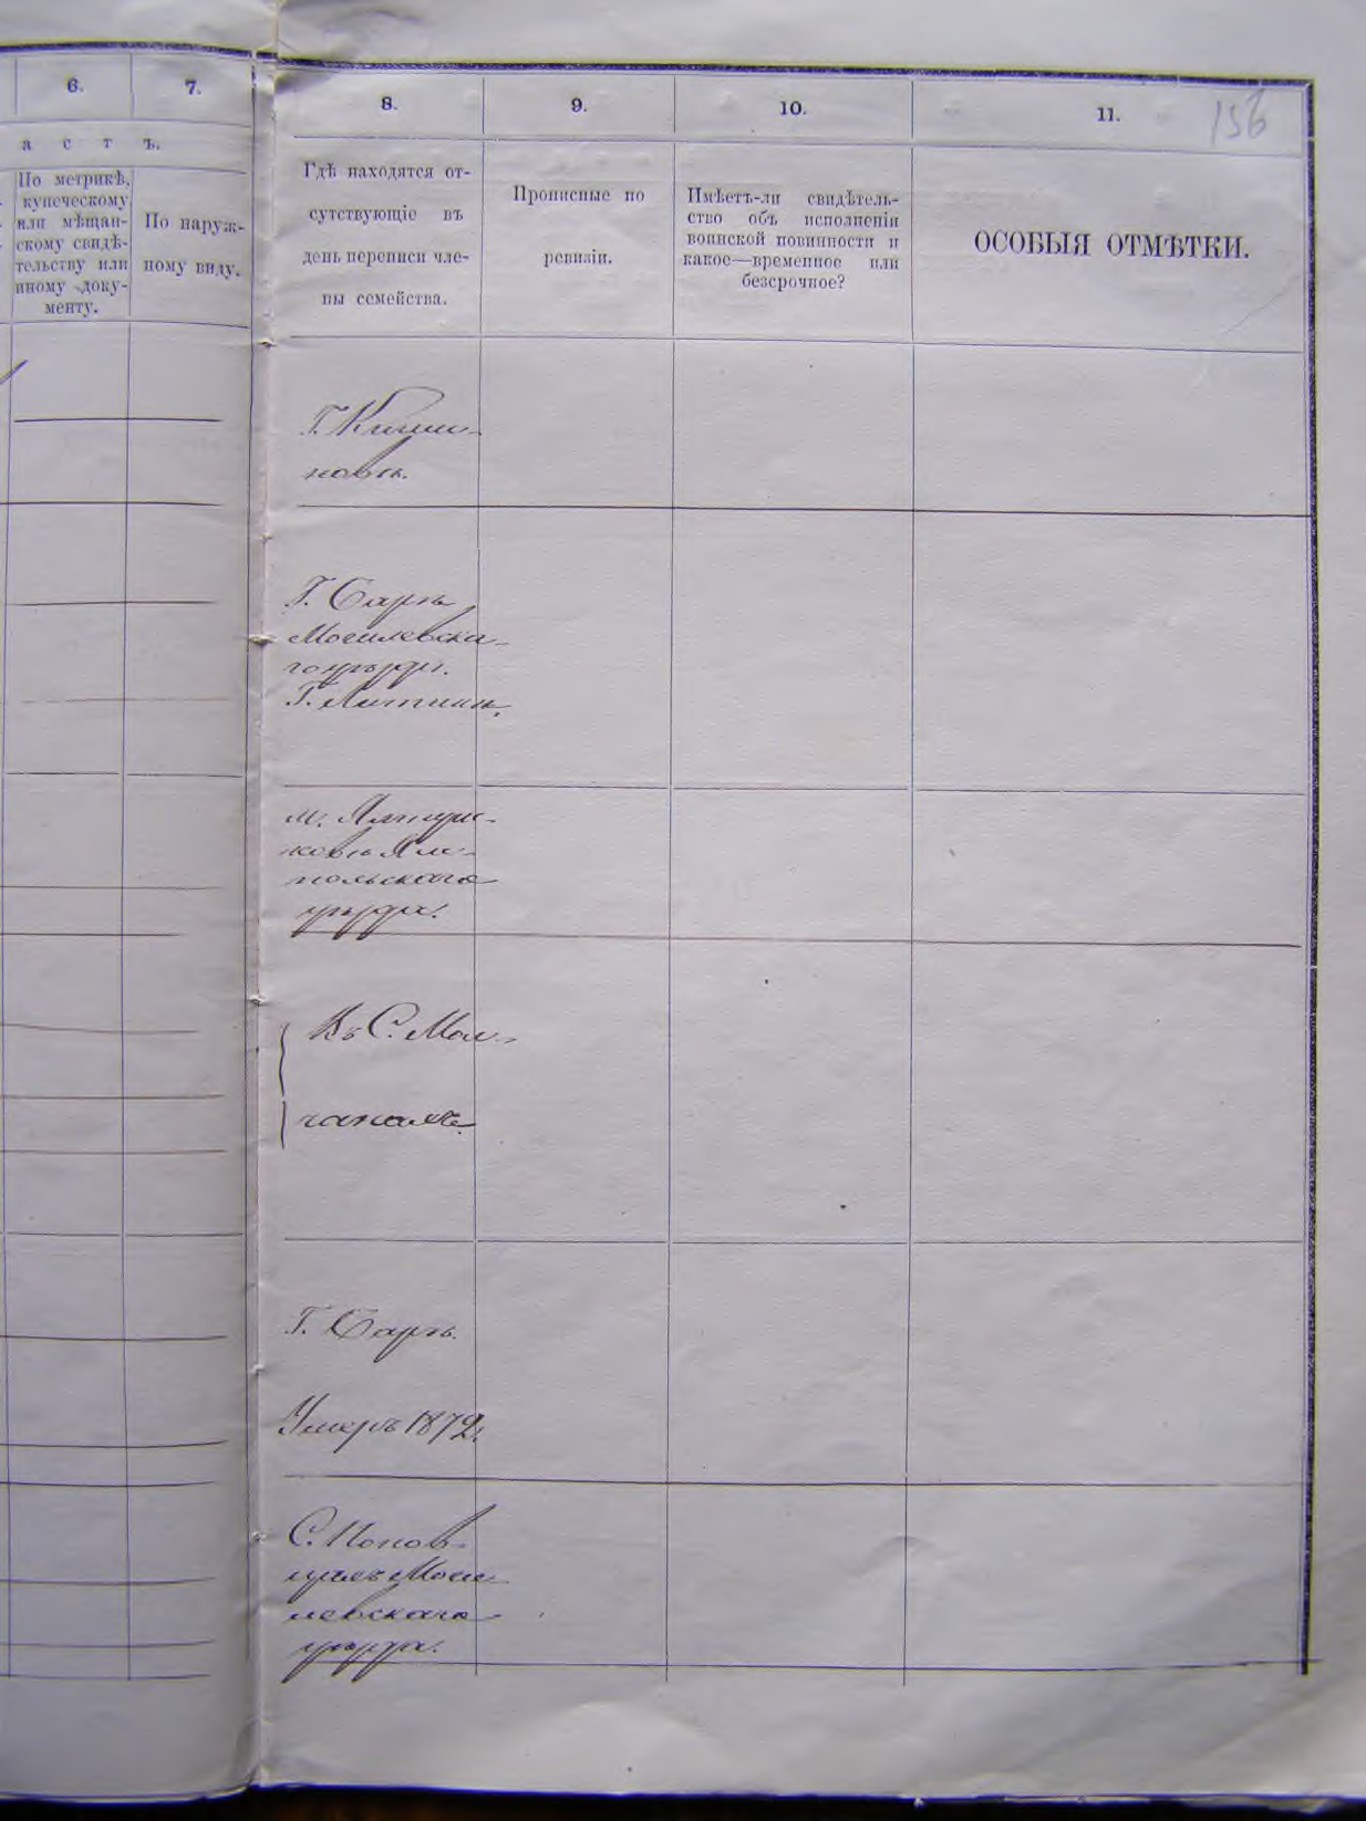 6.
7.
8.
9.
10.
11.
156
а с т ъ.
По метрикѣ,
купеческому
или мѣщан-
скому свидѣ-
тельству или
иному доку-
менту.
По наруж-
ному виду.
Гдѣ находятся от-
сутствующіе въ
день переписи чле-
ны семейства.
Прописные по
ревизіи.
Имѣетъ-ли свидѣтель-
ство объ исполненіи
воинской повинности и
какое—временное или
безсрочное?
ОСОБЫЯ ОТМѢТКИ.
Г. Киши-
невъ.
Г. Баръ
Могилевска-
го уѣзда.
Г. Летинъ.
м.
польскаго
уѣзда.
Въ С. Мол-
чанахъ.
Г. Баръ.
Умеръ 1872.
С. Попов-
цахъ Моги-
левскаго
уѣзда.